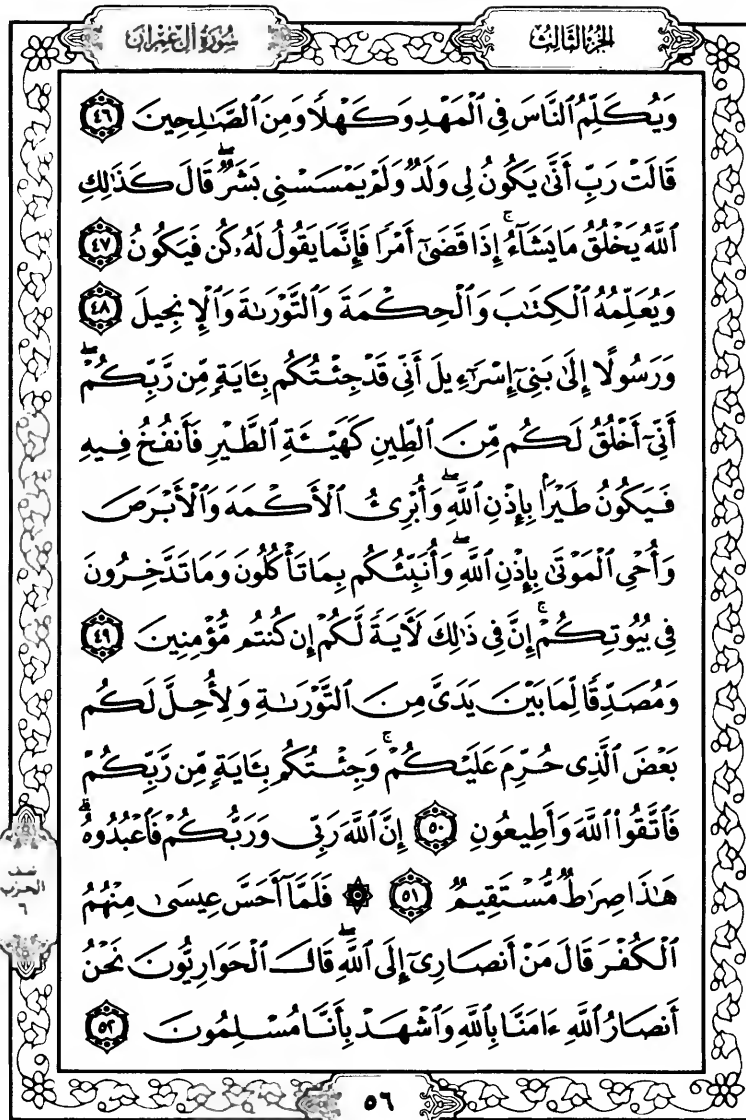 الجزء الثالث
سورة آل عمران
وَيُكَلِّمُ ٱلنَّاسَ فِى ٱلْمَهْدِ وَكَهْلًا وَمِنَ ٱلصَّٰلِحِينَ ٤٦
قَالَتْ رَبِّ أَنَّىٰ يَكُونُ لِى وَلَدٌ وَلَمْ يَمْسَسْنِى بَشَرٌ ۖ قَالَ كَذَٰلِكِ
ٱللَّهُ يَخْلُقُ مَا يَشَآءُ ۚ إِذَا قَضَىٰٓ أَمْرًا فَإِنَّمَا يَقُولُ لَهُۥ كُن فَيَكُونُ ٤٧
وَيُعَلِّمُهُ ٱلْكِتَٰبَ وَٱلْحِكْمَةَ وَٱلتَّوْرَىٰةَ وَٱلْإِنجِيلَ ٤٨
وَرَسُولًا إِلَىٰ بَنِىٓ إِسْرَٰٓءِيلَ أَنِّى قَدْ جِئْتُكُم بِـَٔايَةٍ مِّن رَّبِّكُمْ ۖ
أَنِّىٓ أَخْلُقُ لَكُم مِّنَ ٱلطِّينِ كَهَيْـَٔةِ ٱلطَّيْرِ فَأَنفُخُ فِيهِ
فَيَكُونُ طَيْرًۢا بِإِذْنِ ٱللَّهِ ۖ وَأُبْرِئُ ٱلْأَكْمَهَ وَٱلْأَبْرَصَ
وَأُحْىِ ٱلْمَوْتَىٰ بِإِذْنِ ٱللَّهِ ۖ وَأُنَبِّئُكُم بِمَا تَأْكُلُونَ وَمَا تَدَّخِرُونَ
فِى بُيُوتِكُمْ ۚ إِنَّ فِى ذَٰلِكَ لَـَٔايَةً لَّكُمْ إِن كُنتُم مُّؤْمِنِينَ ٤٩
وَمُصَدِّقًا لِّمَا بَيْنَ يَدَىَّ مِنَ ٱلتَّوْرَىٰةِ وَلِأُحِلَّ لَكُم
بَعْضَ ٱلَّذِى حُرِّمَ عَلَيْكُمْ ۚ وَجِئْتُكُم بِـَٔايَةٍ مِّن رَّبِّكُمْ
فَٱتَّقُوا۟ ٱللَّهَ وَأَطِيعُونِ ٥٠ إِنَّ ٱللَّهَ رَبِّى وَرَبُّكُمْ فَٱعْبُدُوهُ ۗ
هَٰذَا صِرَٰطٌ مُّسْتَقِيمٌ ٥١ ۞ فَلَمَّآ أَحَسَّ عِيسَىٰ مِنْهُمُ
ٱلْكُفْرَ قَالَ مَنْ أَنصَارِىٓ إِلَى ٱللَّهِ ۖ قَالَ ٱلْحَوَارِيُّونَ نَحْنُ
أَنصَارُ ٱللَّهِ ءَامَنَّا بِٱللَّهِ وَٱشْهَدْ بِأَنَّا مُسْلِمُونَ ٥٢
الحزب
٦
٥٦